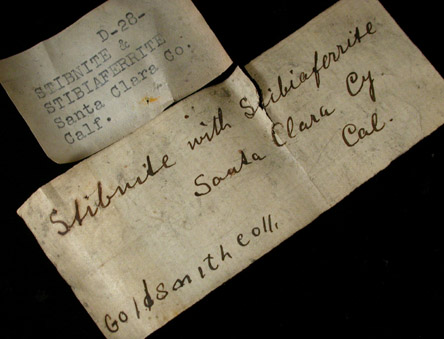 D-28-
STIBNITE &
STIBIAFERRITE
Santa Clara Co.
Calf.
Stibnite with Stibiaferrite
Santa Clara Cy.
Cal.
Goldsmith coll.